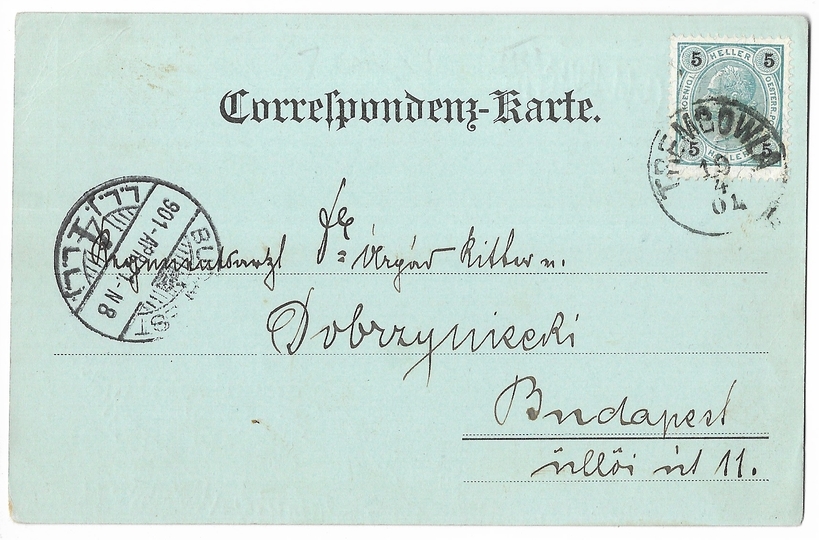 Correspondenz-Karte.
5 HELLER 5
5 HELLER 5
TREMBOWLA
19
4
01
BUDAPEST
901-APR
N8
Regimentsarzt Dr Árpád Ritter v.
Dobrzyniecki
Budapest
üllői út 11.